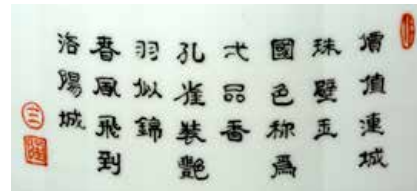 價值連城
珠壁玉
國色称爲
弌品香
孔雀装艷
羽似錦
春風飛到
洛陽城
三